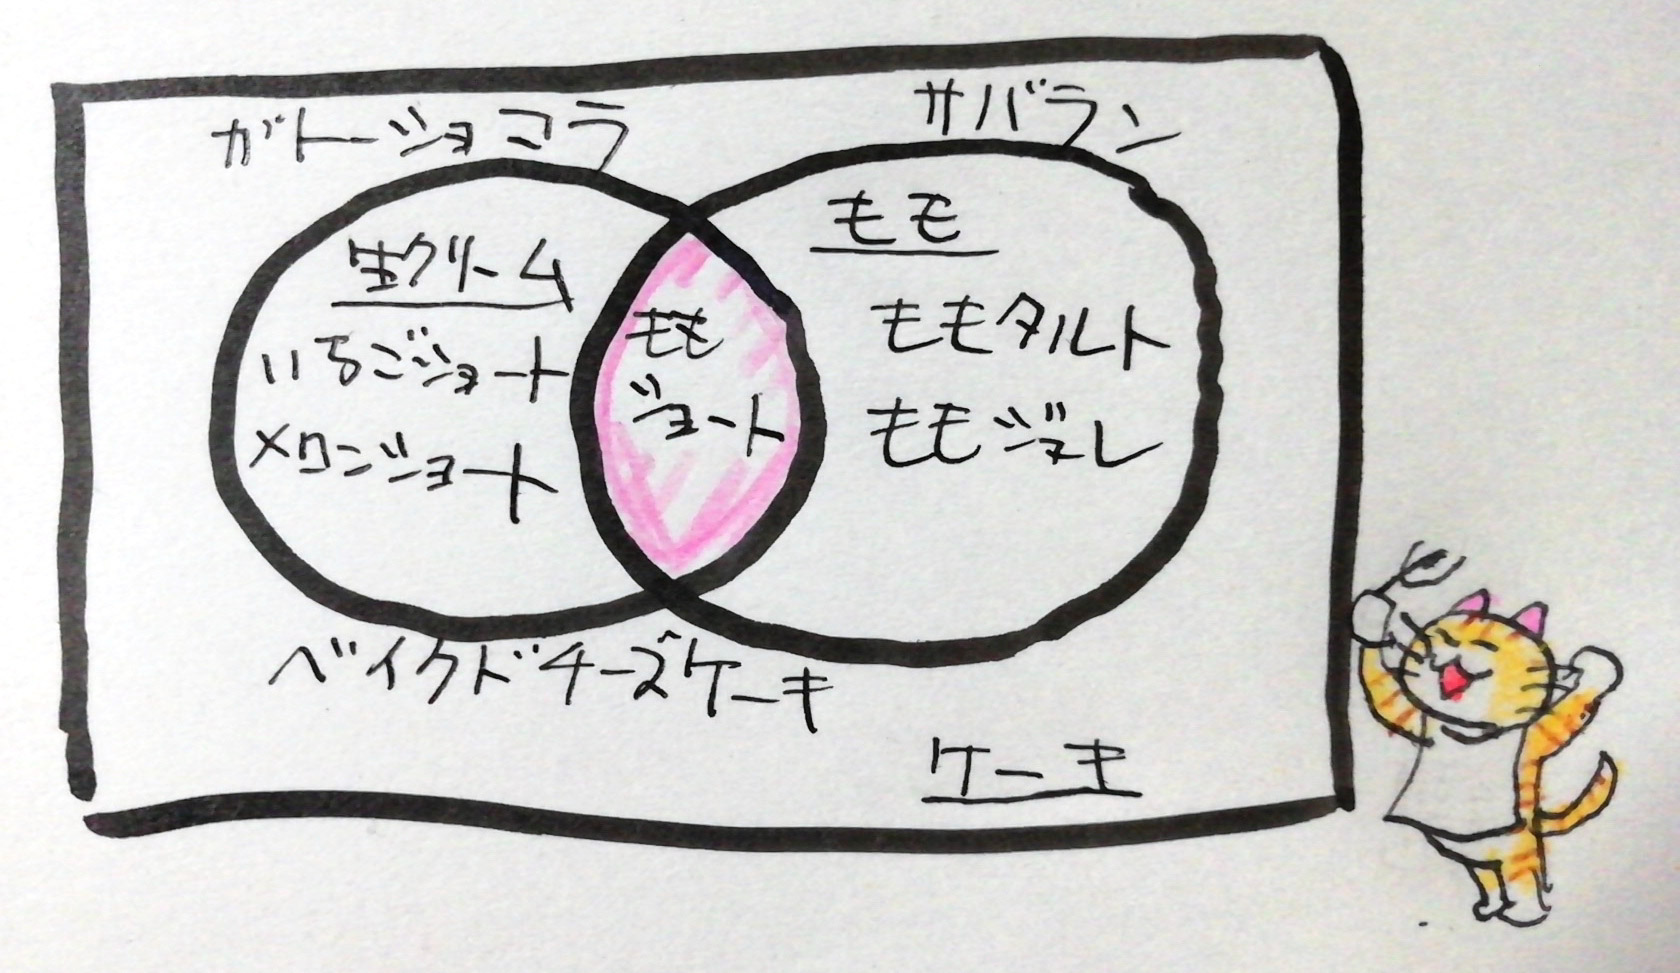 ガトーショコラ
サバラン
生クリーム
いちごショート
メロンショート
もも
ショート
もも
ももタルト
ももジュレ
ベイクドチーズケーキ
ケーキ